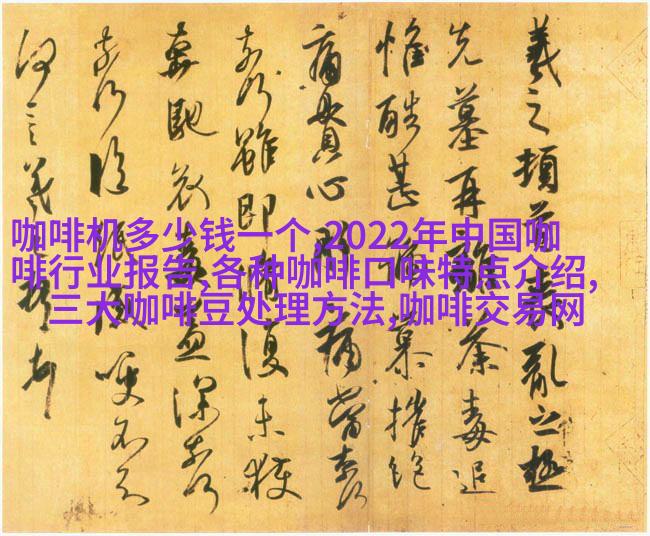 咖啡机多少钱一个,2022年中国咖
啡行业报告,各种咖啡口味特点介绍,
三大咖啡豆处理方法,咖啡交易网
羲之頓首喪亂之極
先墓再離荼毒追
惟酷甚號慕摧絕
痛貫心肝痛當奈何
奈何雖即脩復未獲
奔馳哀毒益深奈何
奈何臨紙感哽不知
何言羲之頓首